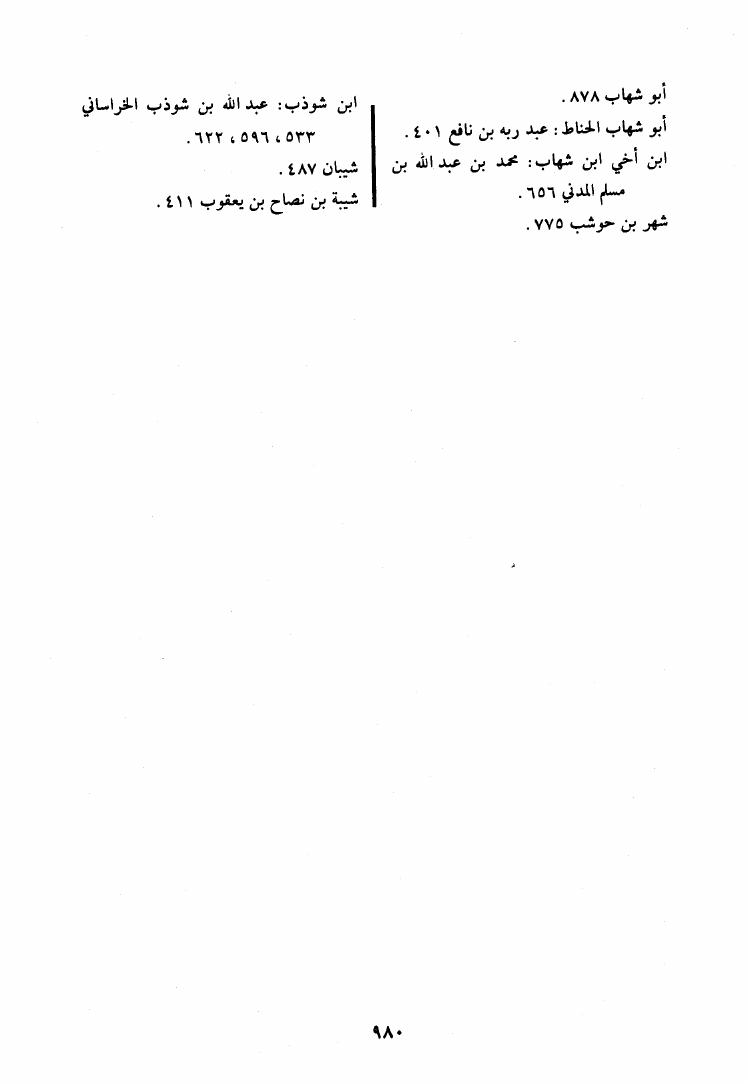 أبو شهاب ٨٧٨ .
أبو شهاب الحناط : عبد ربه بن نافع ٤٠١ .
ابن أخي ابن شهاب : محمد بن عبد الله بن
مسلم المدني ٦٥٦ .
شهر بن حوشب ٧٧٥ .
ابن شوذب : عبد الله بن شوذب الخراساني
٥٣٣ ، ٥٩٦ ، ٦٢٢ .
شيبان ٤٨٧ .
شيبة بن نصاح بن يعقوب ٤١١ .
٩٨٠